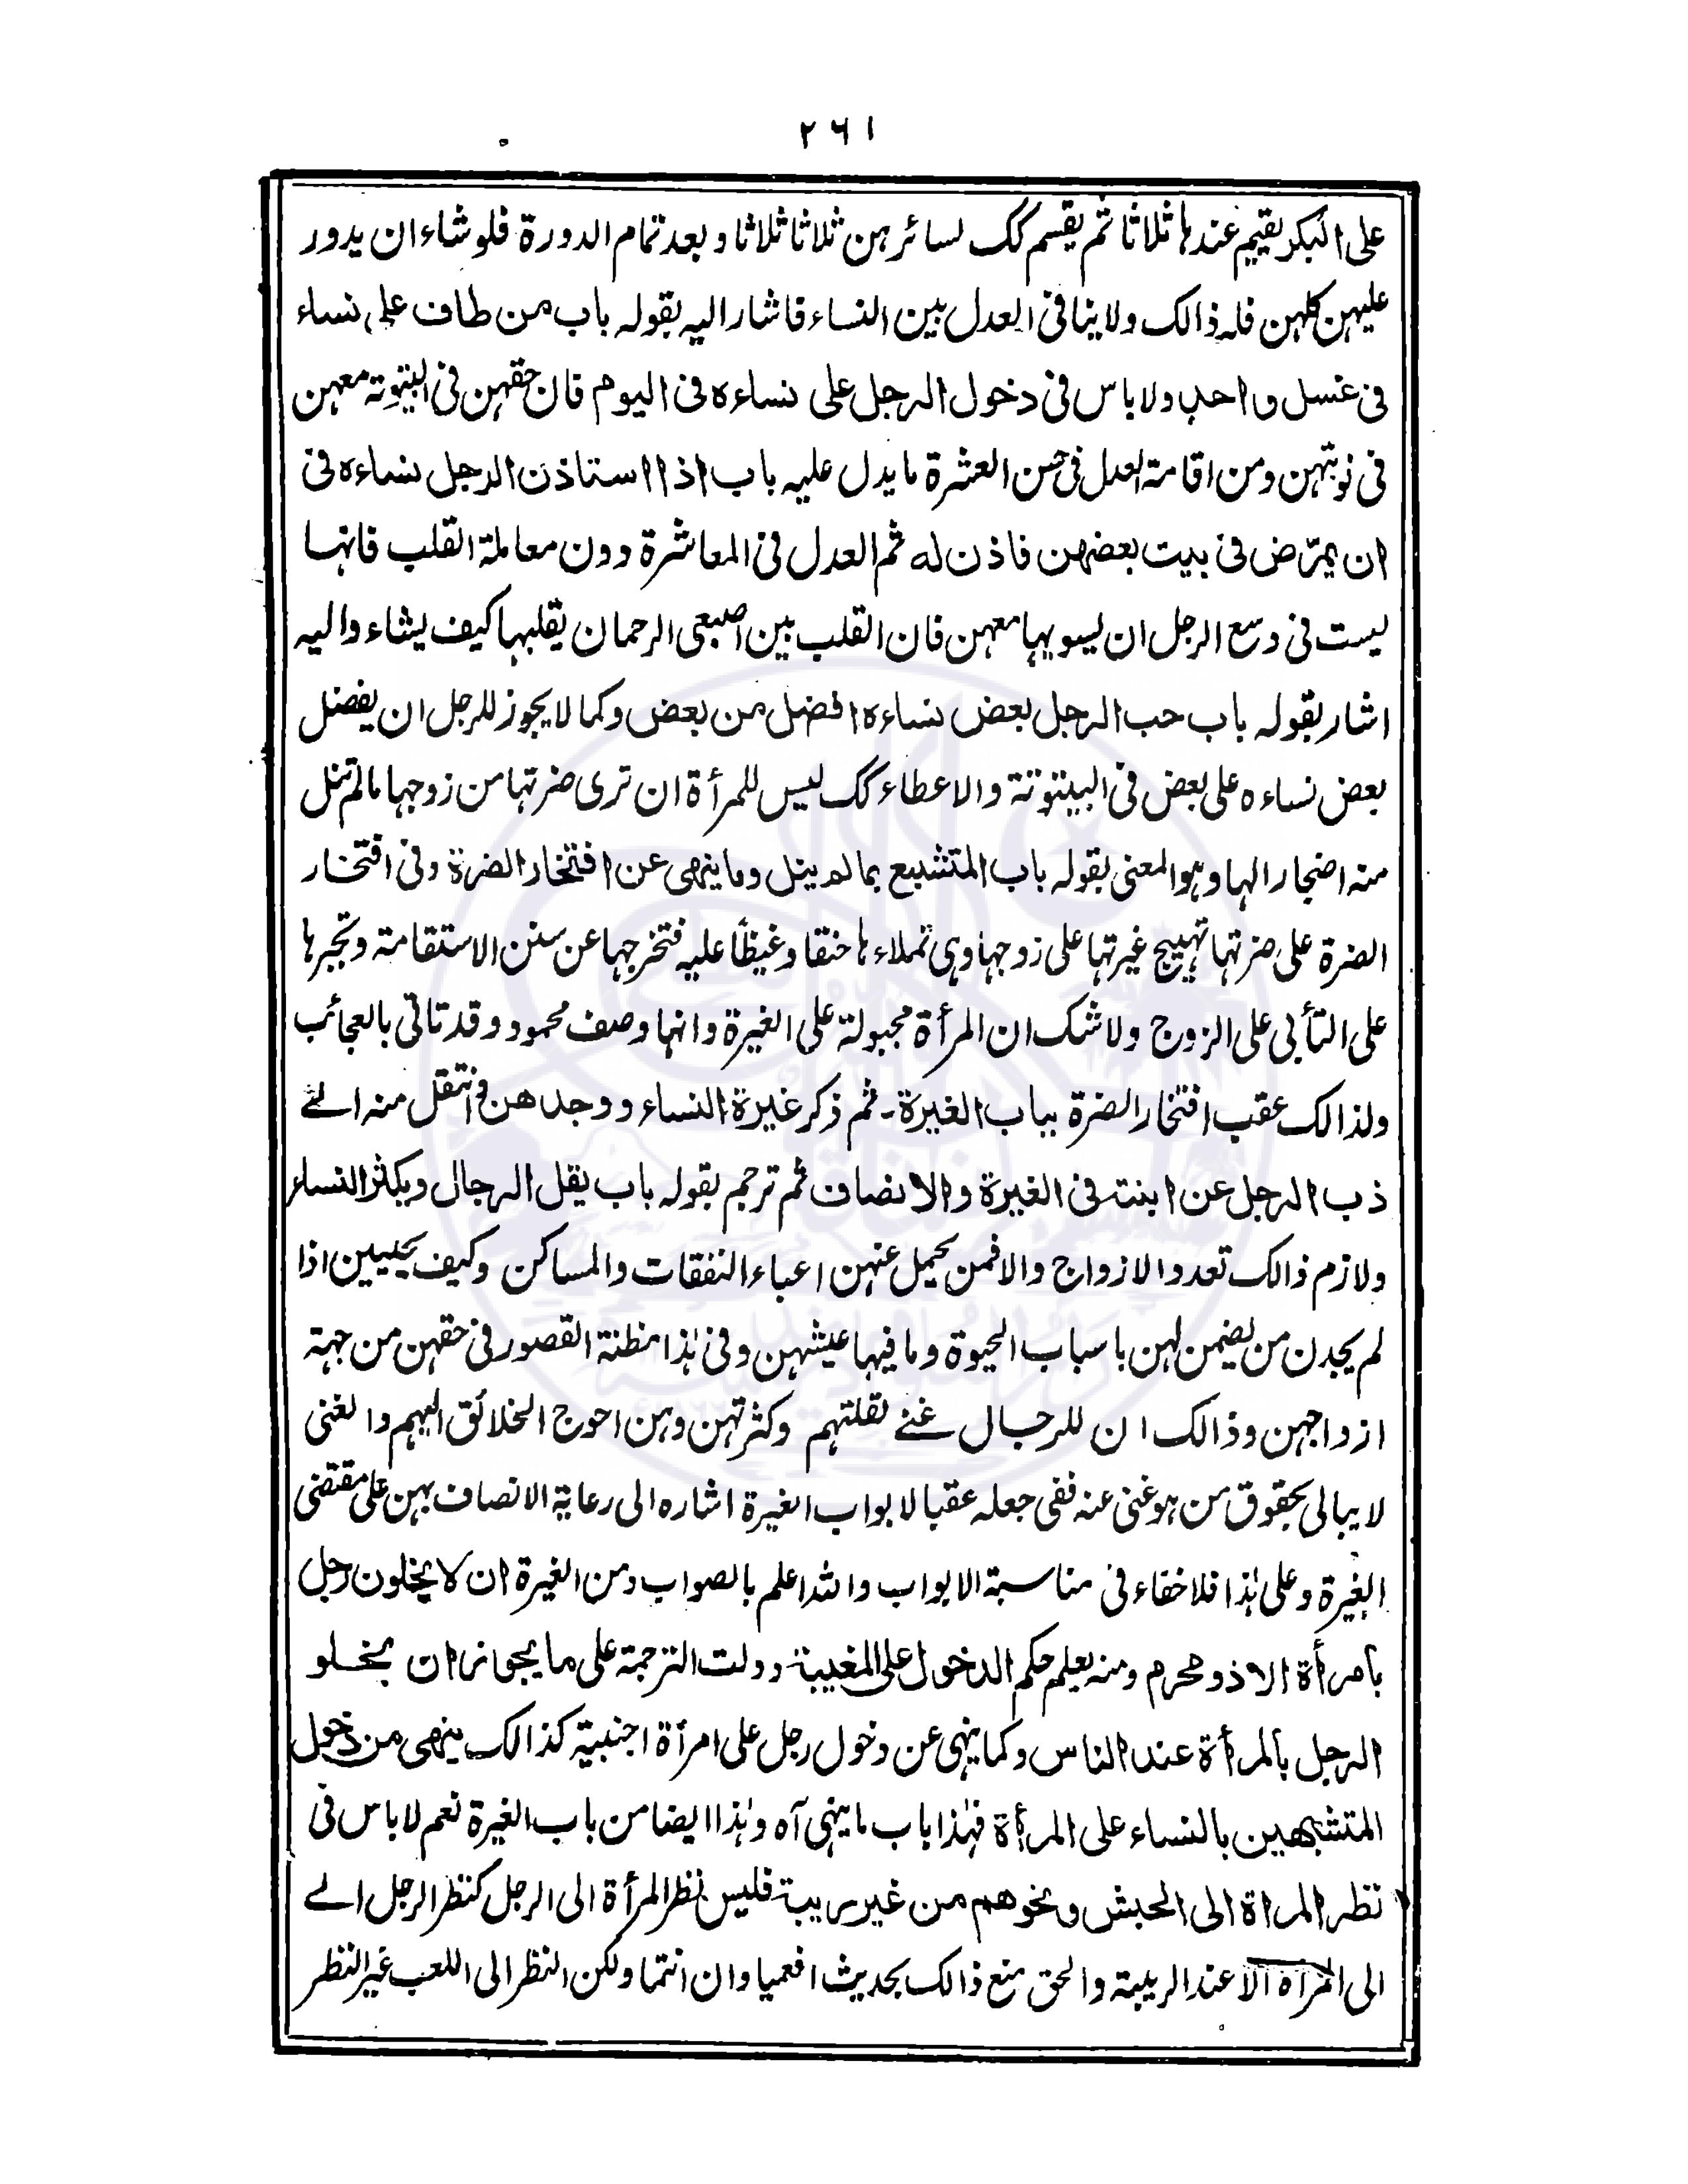 ٢٦١
على البكر يقيم عندها ثلاثا ثم يقسم كك لسائرهن ثلاثا ثلاثا و بعد تمام الدورة فلو شاء ان يدور
عليهن كلهن فله ذالك ولا ينافى العدل بين النساء فاشار اليه بقوله باب من طاف على نساء
فى غسل واحد ولا باس فى دخول الرجل على نساءه فى اليوم فان حقهن فى البيتوتة معهن
فى نوبتهن ومن اقامة العدل فى حسن العشرة ما يدل عليه باب اذا استاذن الرجل نساءه فى
ان يمرّض فى بيت بعضهن فاذن له ثم العدل فى المعاشرة دون معاملة القلب فانها
ليست فى وسع الرجل ان يسويها معهن فان القلب بين اصبعى الرحمان يقلبها كيف يشاء واليه
اشار بقوله باب حب الرجل بعض نساءه افضل من بعض وكما لا يجوز للرجل ان يفضل
بعض نساءه على بعض فى البيتوتة والاعطاء كك ليس للمرأة ان ترى ضرتها من زوجها مالم تنل
منه اضجارا لها وهو المعنى بقوله باب المتشبع بما لم ينل وما ينهى عن افتخار الضرة وفى افتخار
الضرة على ضرتها تهييج غيرتها على زوجها وهى تملاءها حنقا وغيظًا عليه فتخرجها عن سنن الاستقامة وتجبرها
على التأبى على الزوج ولا شك ان المرأة مجبولة على الغيرة وانها وصف محمود وقد تاتى بالعجائب
ولذالك عقب افتخار الضرة بباب الغيرة ـ ثم ذكر غيرة النساء ووجدهن فانتقل منه الے
ذب الرجل عن ابنته فى الغيرة والانصاف ثم ترجم بقوله باب يقل الرجال ويكثر النساء
ولازم ذالك تعدد الازواج والا فمن يحمل عنهن اعباء النفقات والمساكن وكيف يحيين اذا
لم يجدن من يضمن لهن باسباب الحيوة وما فيها عيشهن وفى هٰذا مظنة القصور فى حقهن من جهة
ازواجهن وذالك ان للرجال غنے لقلتهم وكثرتهن وهن احوج الخلائق اليهم والغنى
لا يبالى بحقوق من هو غنى عنه ففى جعله عقبا لابواب الغيرة اشاره الى رعاية الانصاف بهن على مقتضى
الغيرة وعلى هٰذا فلا خفاء فى مناسبة الابواب والله اعلم بالصواب ومن الغيرة ان لا يخلون رجل
بامرأة الا ذو محرم ومنه يعلم حكم الدخول على المغيبة ودلت الترجمة على ما يجوز ان يخلو
الرجل بالمرأة عند الناس وكما ينهى عن دخول رجل على امرأة اجنبية كذالك ينهى من دخول
المتشبهين بالنساء على المرأة فهٰذا باب ما ينهى آه وهٰذا ايضا من باب الغيرة نعم لا باس فى
نظر المراة الى الحبش ونحوهم من غير ريبة فليس نظر المرأة الى الرجل كنظر الرجل الے
الى المرأة الا عند الريبة والحق منع ذالك بحديث افعمياوان انتما ولكن النظر الى اللعب غير النظر